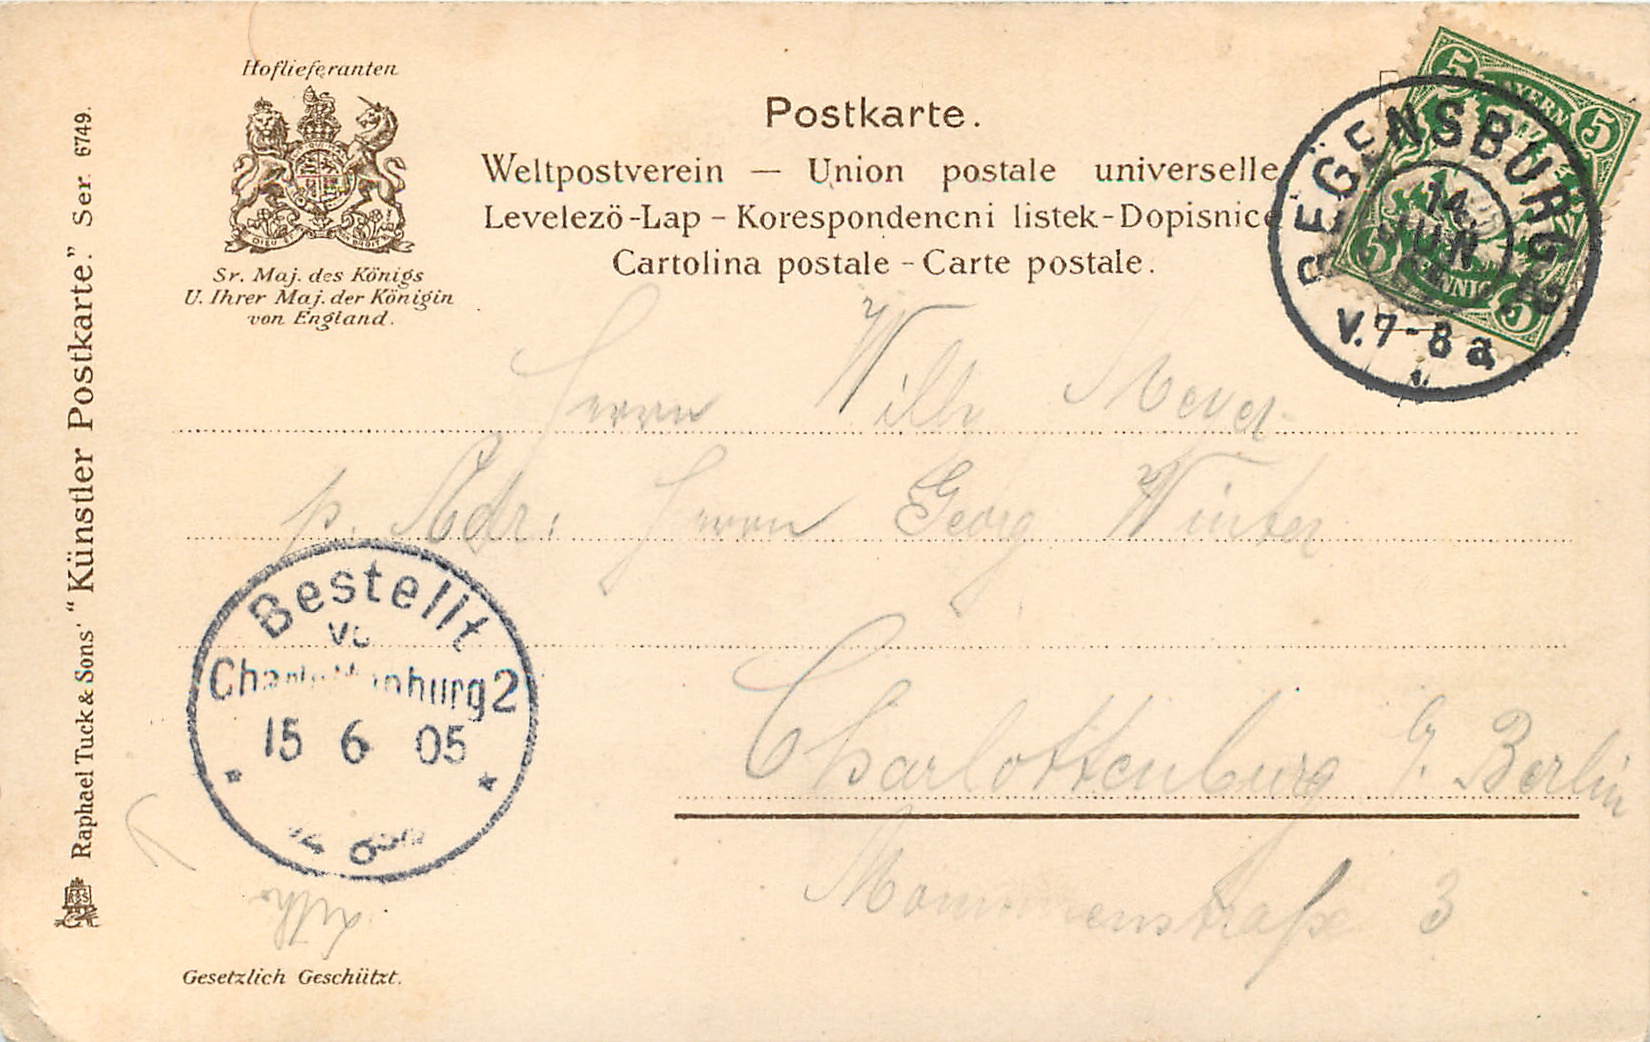 Hoflieferanten
DIEU ET MON DROIT
Sr. Maj. des Königs
U. Ihrer Maj. der Königin
von England.
Postkarte.
Weltpostverein — Union postale universelle
Levelezö-Lap - Korespondencni listek - Dopisnice
Cartolina postale - Carte postale.
5 BAYERN 5
5 PFENNIG 5
REGENSBURG
14
JUN
V. 7-8 a
Raphael Tuck & Sons' "Künstler Postkarte." Ser. 6749.
Herrn Willy Meyer
p. Adr: Herrn Georg Winter
Charlottenburg b/ Berlin
Mommsenstraße 3
Bestellt
vom
Charlottenburg 2
15 6 05
Litho
Gesetzlich Geschützt.